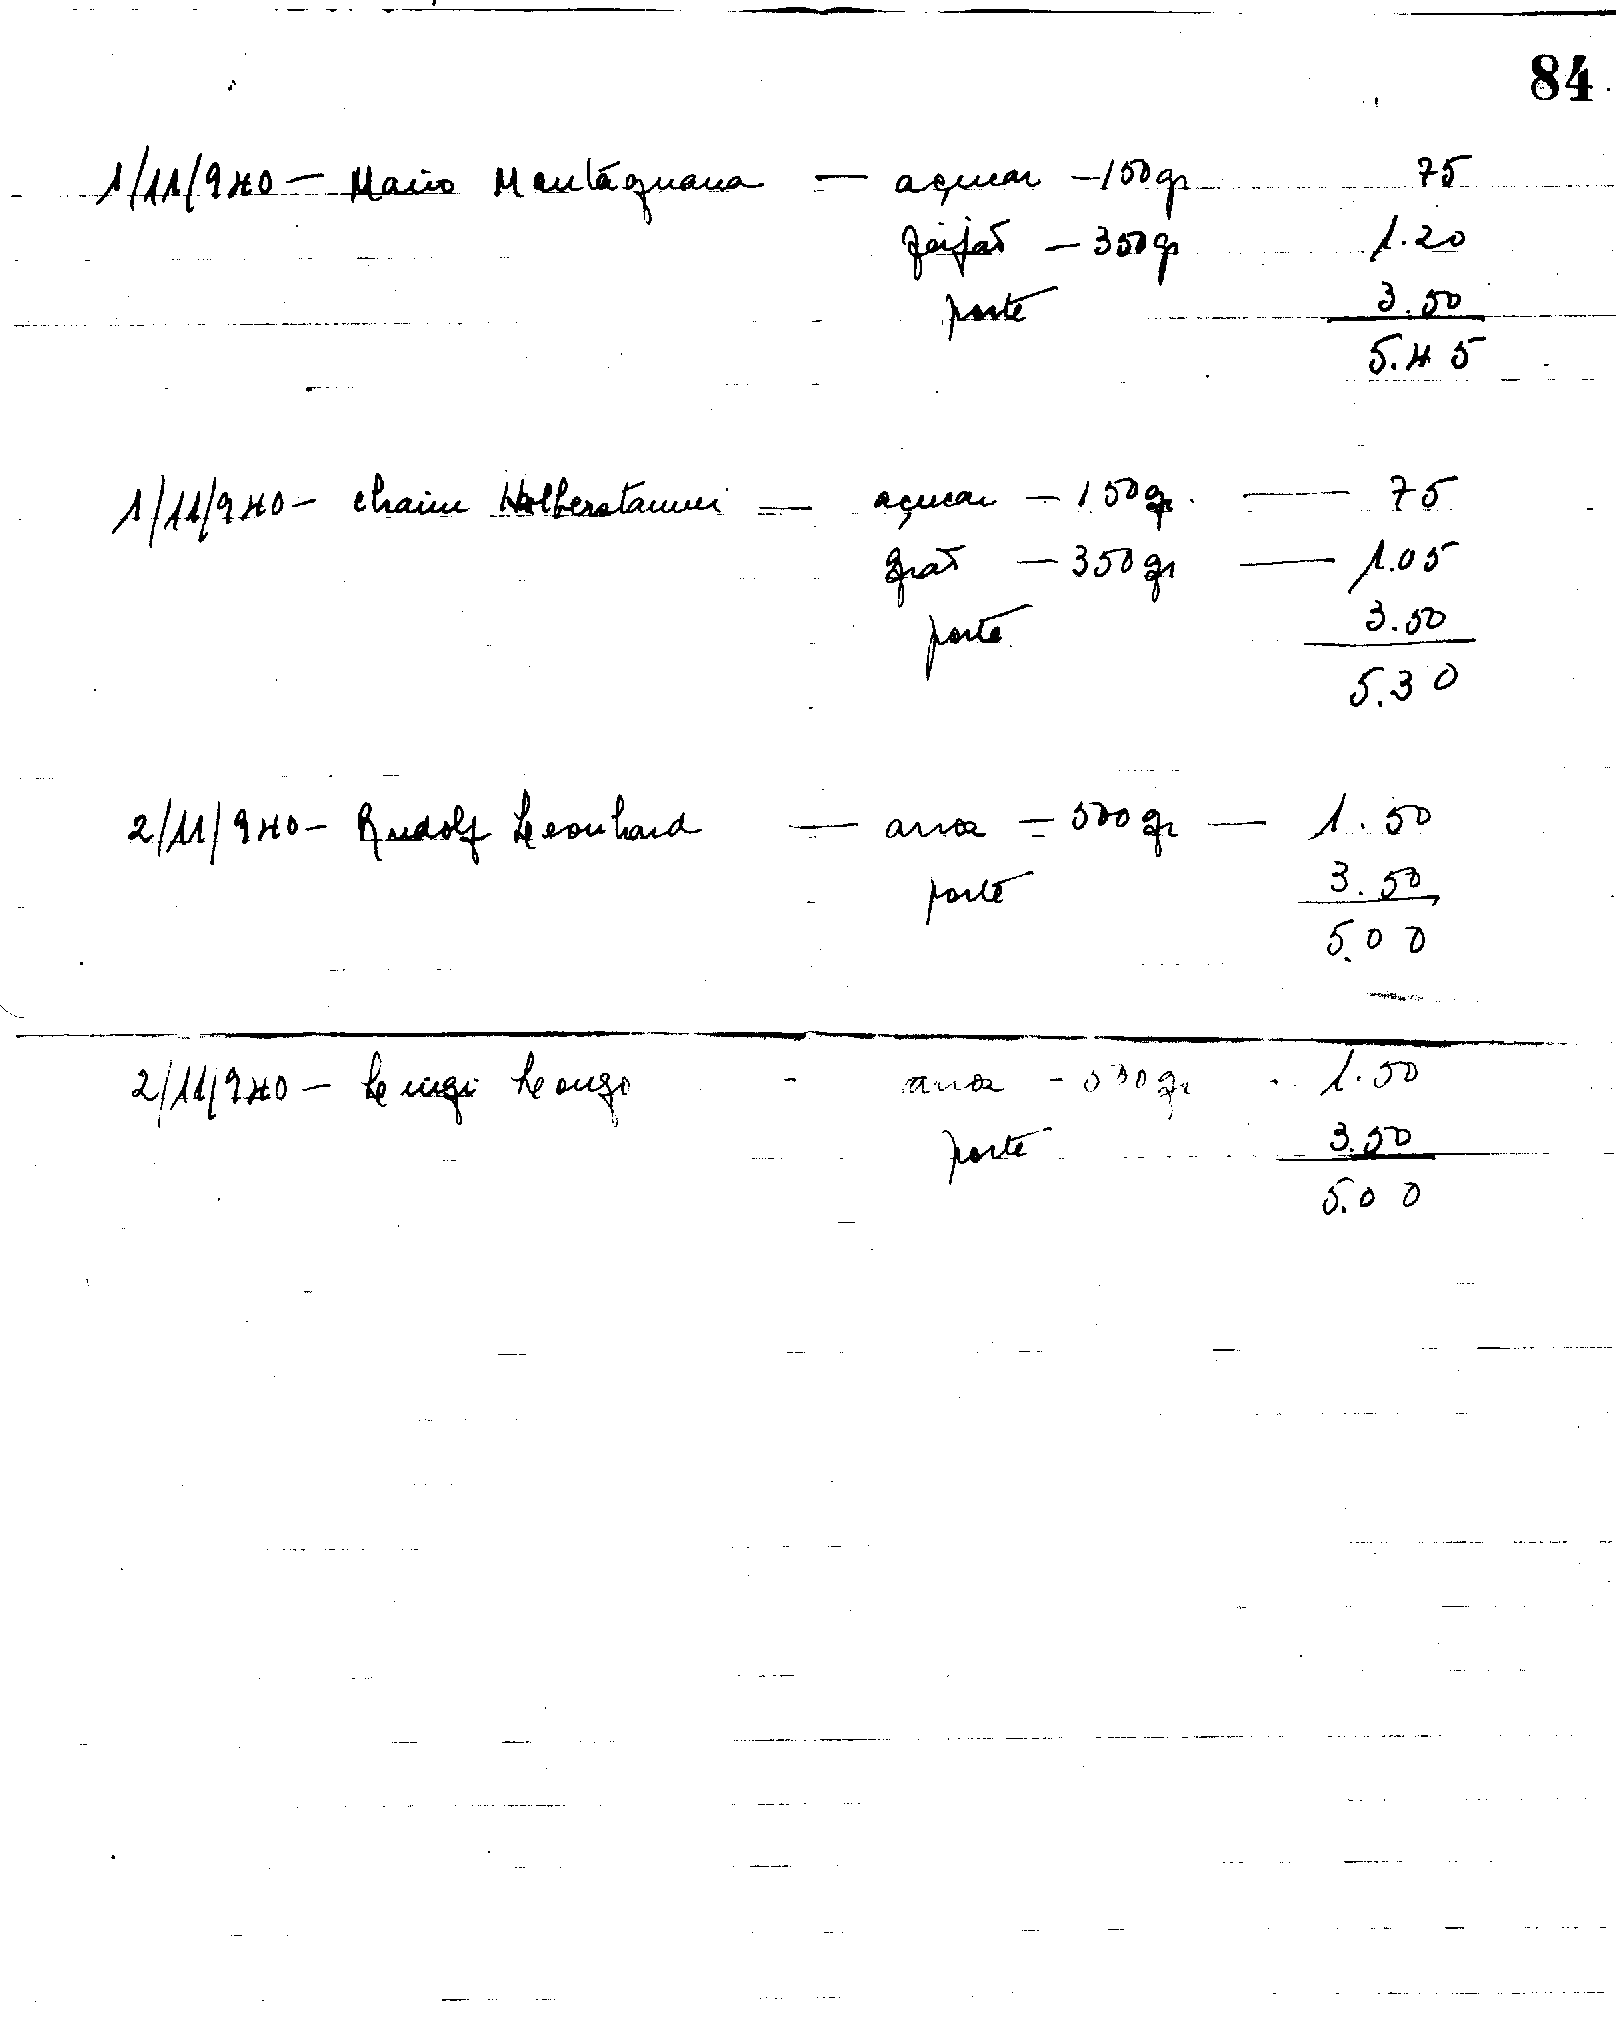 84
1/11/940 — Mario Montagnana — açucar — 150gr 75
feijão — 350gr 1.20
porte 3.50
5.45
1/11/940 — Chaim Halberstamm — açucar — 150gr. — 75
grão — 350gr — 1.05
porte 3.50
5.30
2/11/940 — Rudolf Leonhard — arroz — 500gr — 1.50
porte 3.50
5.00
2/11/940 — Luigi Longo - arroz - 500gr - 1.50
porte 3.50
5.00